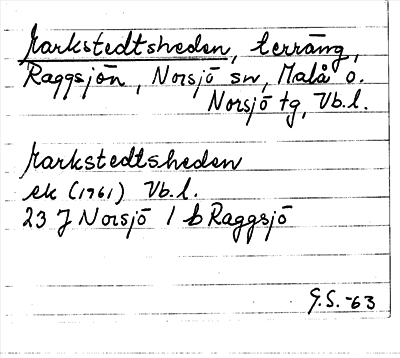 Markstedtsheden, terräng,
Raggsjön, Norsjö sn, Malå o.
Norsjö tg, Vb.l.
Markstedtsheden
ek (1961) Vb.l.
23 J Norsjö 1 b Raggsjö
G.S. -63